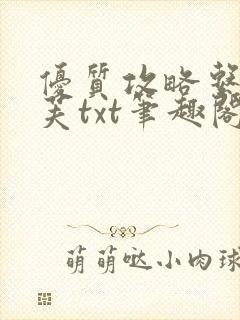 優質攻略整
芙txt筆趣閣
萌萌哒小肉球